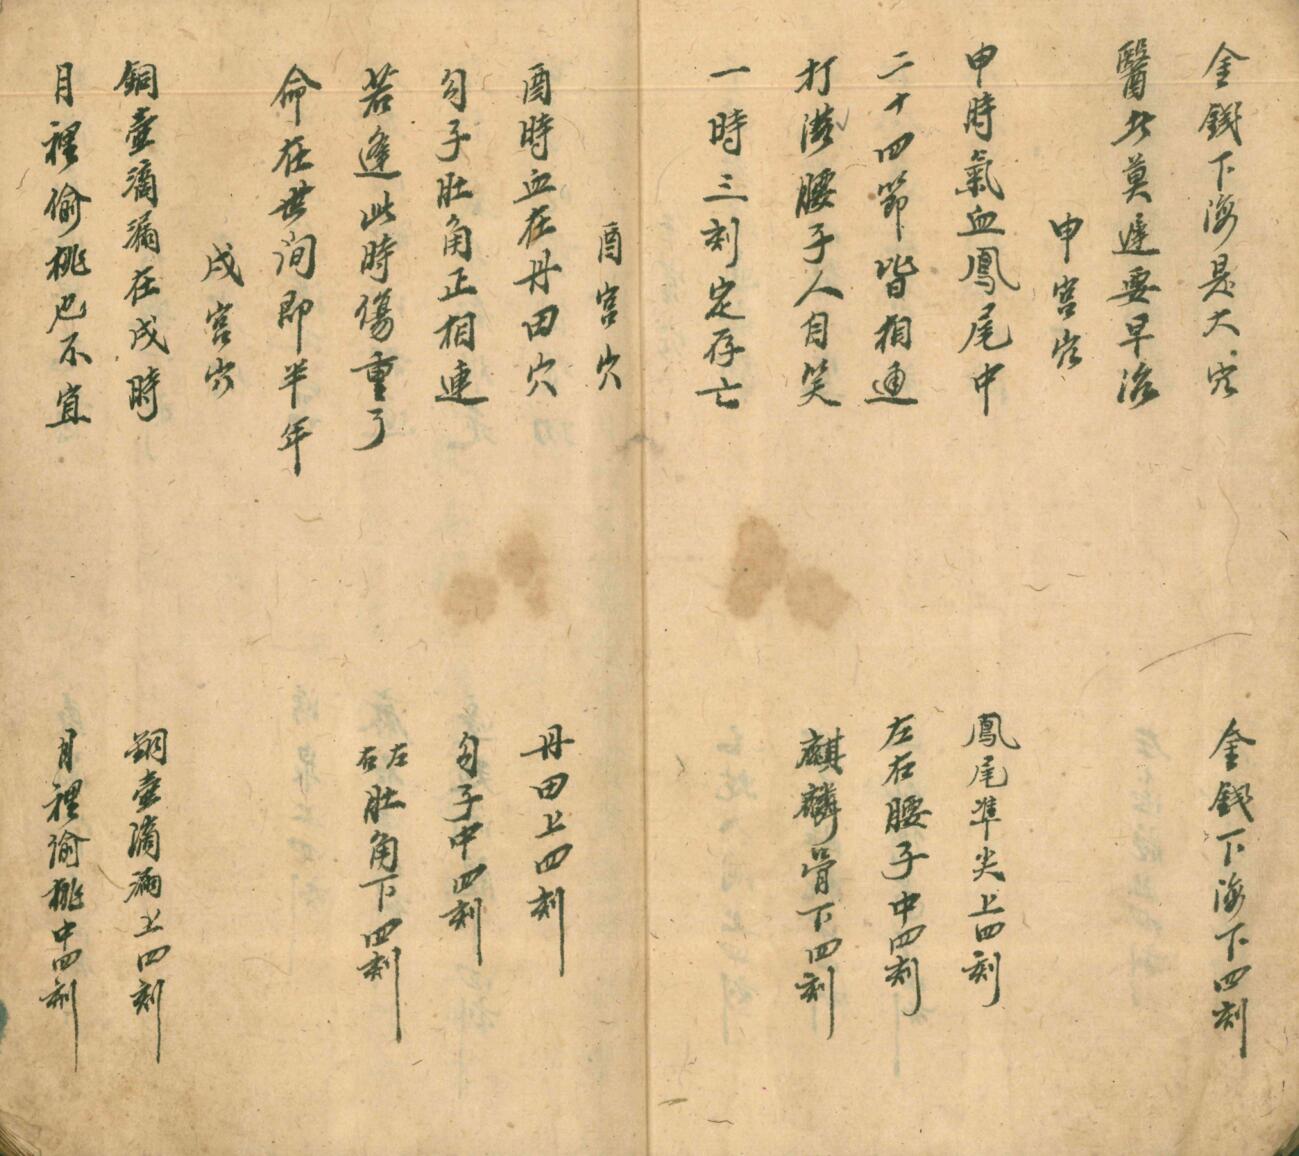 金錢下海是大穴
金錢下海下四刻
醫此莫遲要早治
申宮穴
申時氣血鳳尾中
鳳尾準尖上四刻
二十四節皆相通
左右腰子中四刻
打滋腰子人自笑
麒麟骨下四刻
一時三刻定存亡
酉宮穴
酉時血在丹田穴
丹田上四刻
勾子肚角正相連
勾子中四刻
若逢此時傷重了
左右肚角下四刻
命在世洵即半年
戍宮穴
銅壺滴漏在戍時
銅壺滴漏上四刻
月裡偷桃也不宜
月裡偷桃中四刻